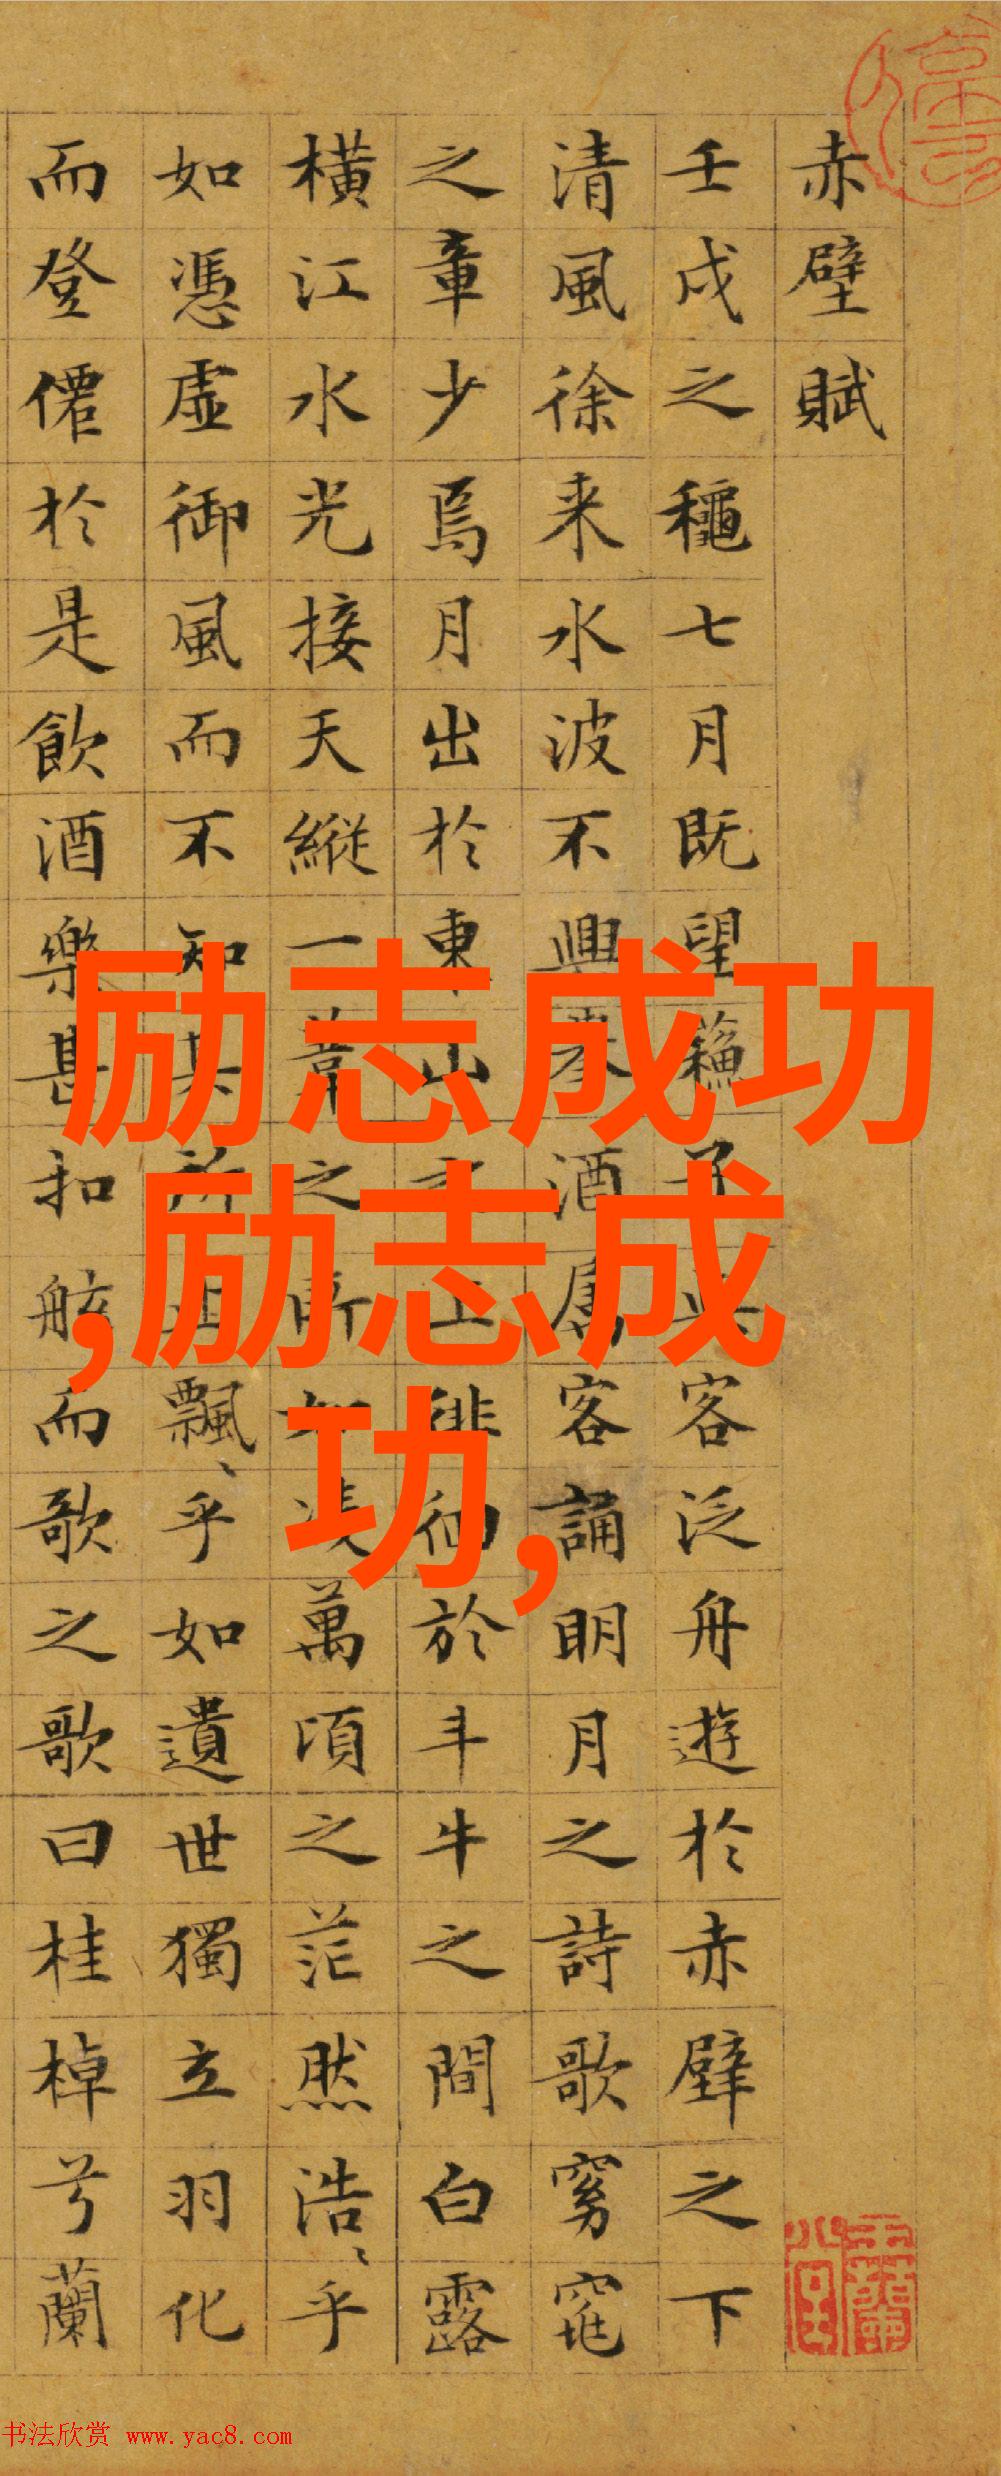 赤壁賦
壬戌之龝七月既望蘓子與客泛舟遊於赤壁之下
清風徐来水波不興舉酒屬客誦明月之詩歌窈窕
之章少焉月出於東山之上徘徊於斗牛之間白露
橫江水光接天縱一葦之所如凌萬頃之茫然浩〻乎
如憑虛御風而不知其所止飄〻乎如遺世獨立羽化
而登僊於是飲酒樂甚扣舷而歌之歌曰桂棹兮蘭
励志成功
,励志成
功,
书法欣赏 www.yac8.com